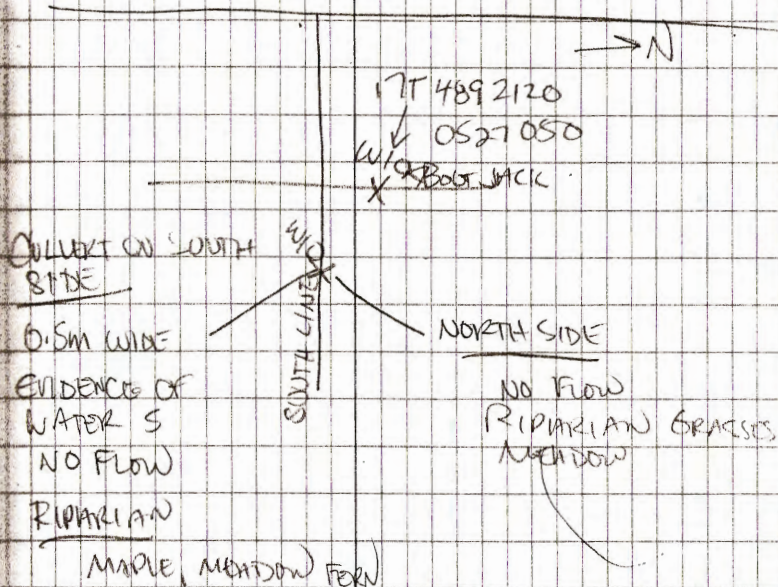 → N
17T 4892120
0527050
W/C
X BOOT JACK
CULVERT ON SOUTH
SIDE
0.5m WIDE
EVIDENCE OF
WATER S
NO FLOW
RIPARIAN
MAPLE, MEADOW FERN
W/C
SOUTH LINE
NORTH SIDE
NO FLOW
RIPARIAN GRASSES
MEADOW